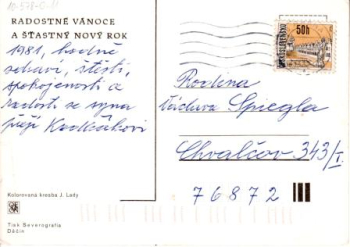 RADOSTNÉ VÁNOCE
A ŠŤASTNÝ NOVÝ ROK
1981, hodně
zdraví, štěstí,
spokojenosti a
radosti
přejí
Kolorovaná kresba J. Lady
Tisk Severografia
Děčín
50h
Rodina
Václava Spiegla
Chvalčov 343/I.
76872